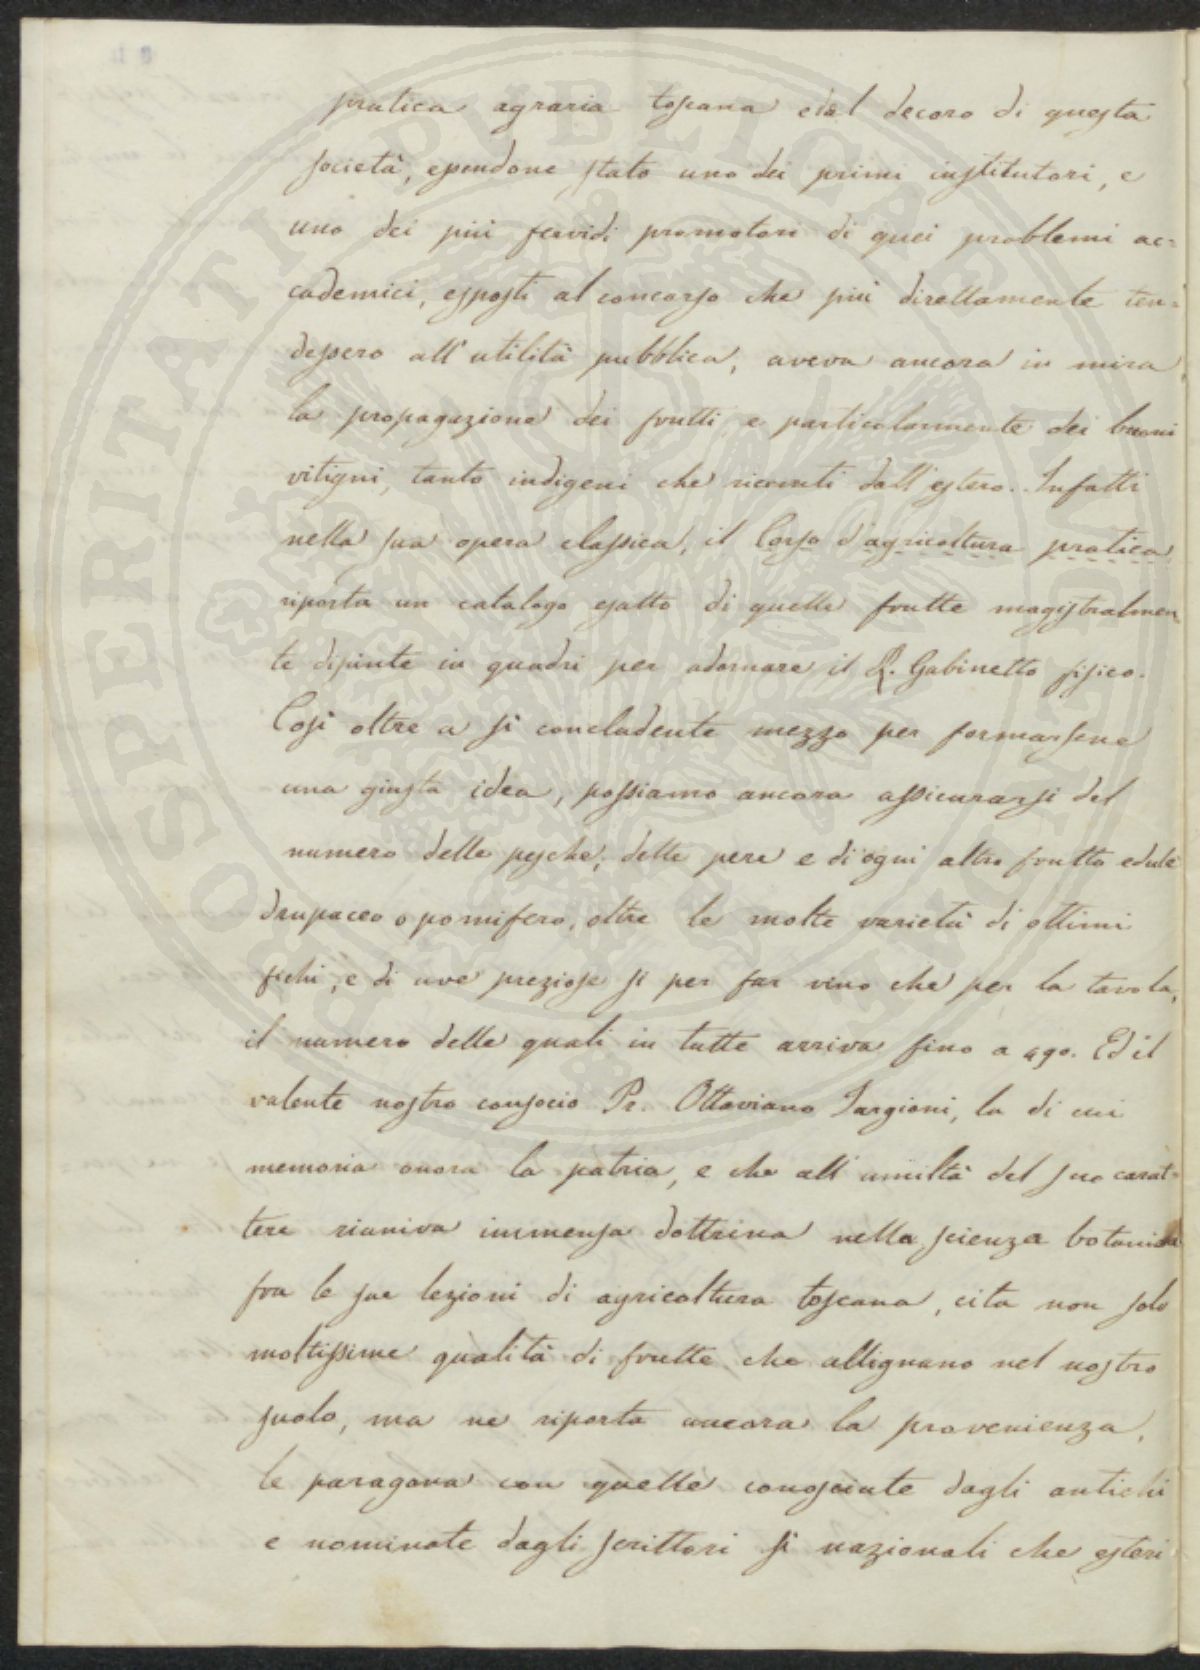 pratica agraria toscana e dal decoro di questa
società, essendone stato uno dei primi institutori, e
uno dei più fervidi promotori di quei problemi ac=
cademici, esposti al concorso che più direttamente ten=
dessero all'utilità pubblica, aveva ancora in mira
la propagazione dei frutti e particolarmente dei buoni
vitigni, tanto indigeni che ricevuti dall'estero. Infatti
nella sua opera classica, il Corso d'agricoltura pratica
riporta un catalogo esatto di quelle frutte magistralmen
te dipinte in quadri per adornare il R. Gabinetto fisico.
Così oltre a sì concludente mezzo per formarsene
una giusta idea, possiamo ancora assicurarsi del
numero delle pesche, delle pere e di ogni altro frutto edule
drupaceo o pomifero, oltre le molte varietà di ottimi
fichi, e di uve preziose sì per far vino che per la tavola,
il numero delle quali in tutte arriva fino a 490. Ed il
valente nostro consocio Pr. Ottaviano Targioni, la di cui
memoria onora la patria, e che all'umiltà del suo carat=
tere riuniva immensa dottrina nella scienza botanica
fra le sue lezioni di agricoltura toscana, cita non solo
moltissime qualità di frutte che allignano nel nostro
suolo, ma ne riporta ancora la provenienza,
le paragona con quelle conosciute dagli antichi
e nominate dagli scrittori sì nazionali che esteri
PROSPERITATI PUBLICAE AUGENDAE